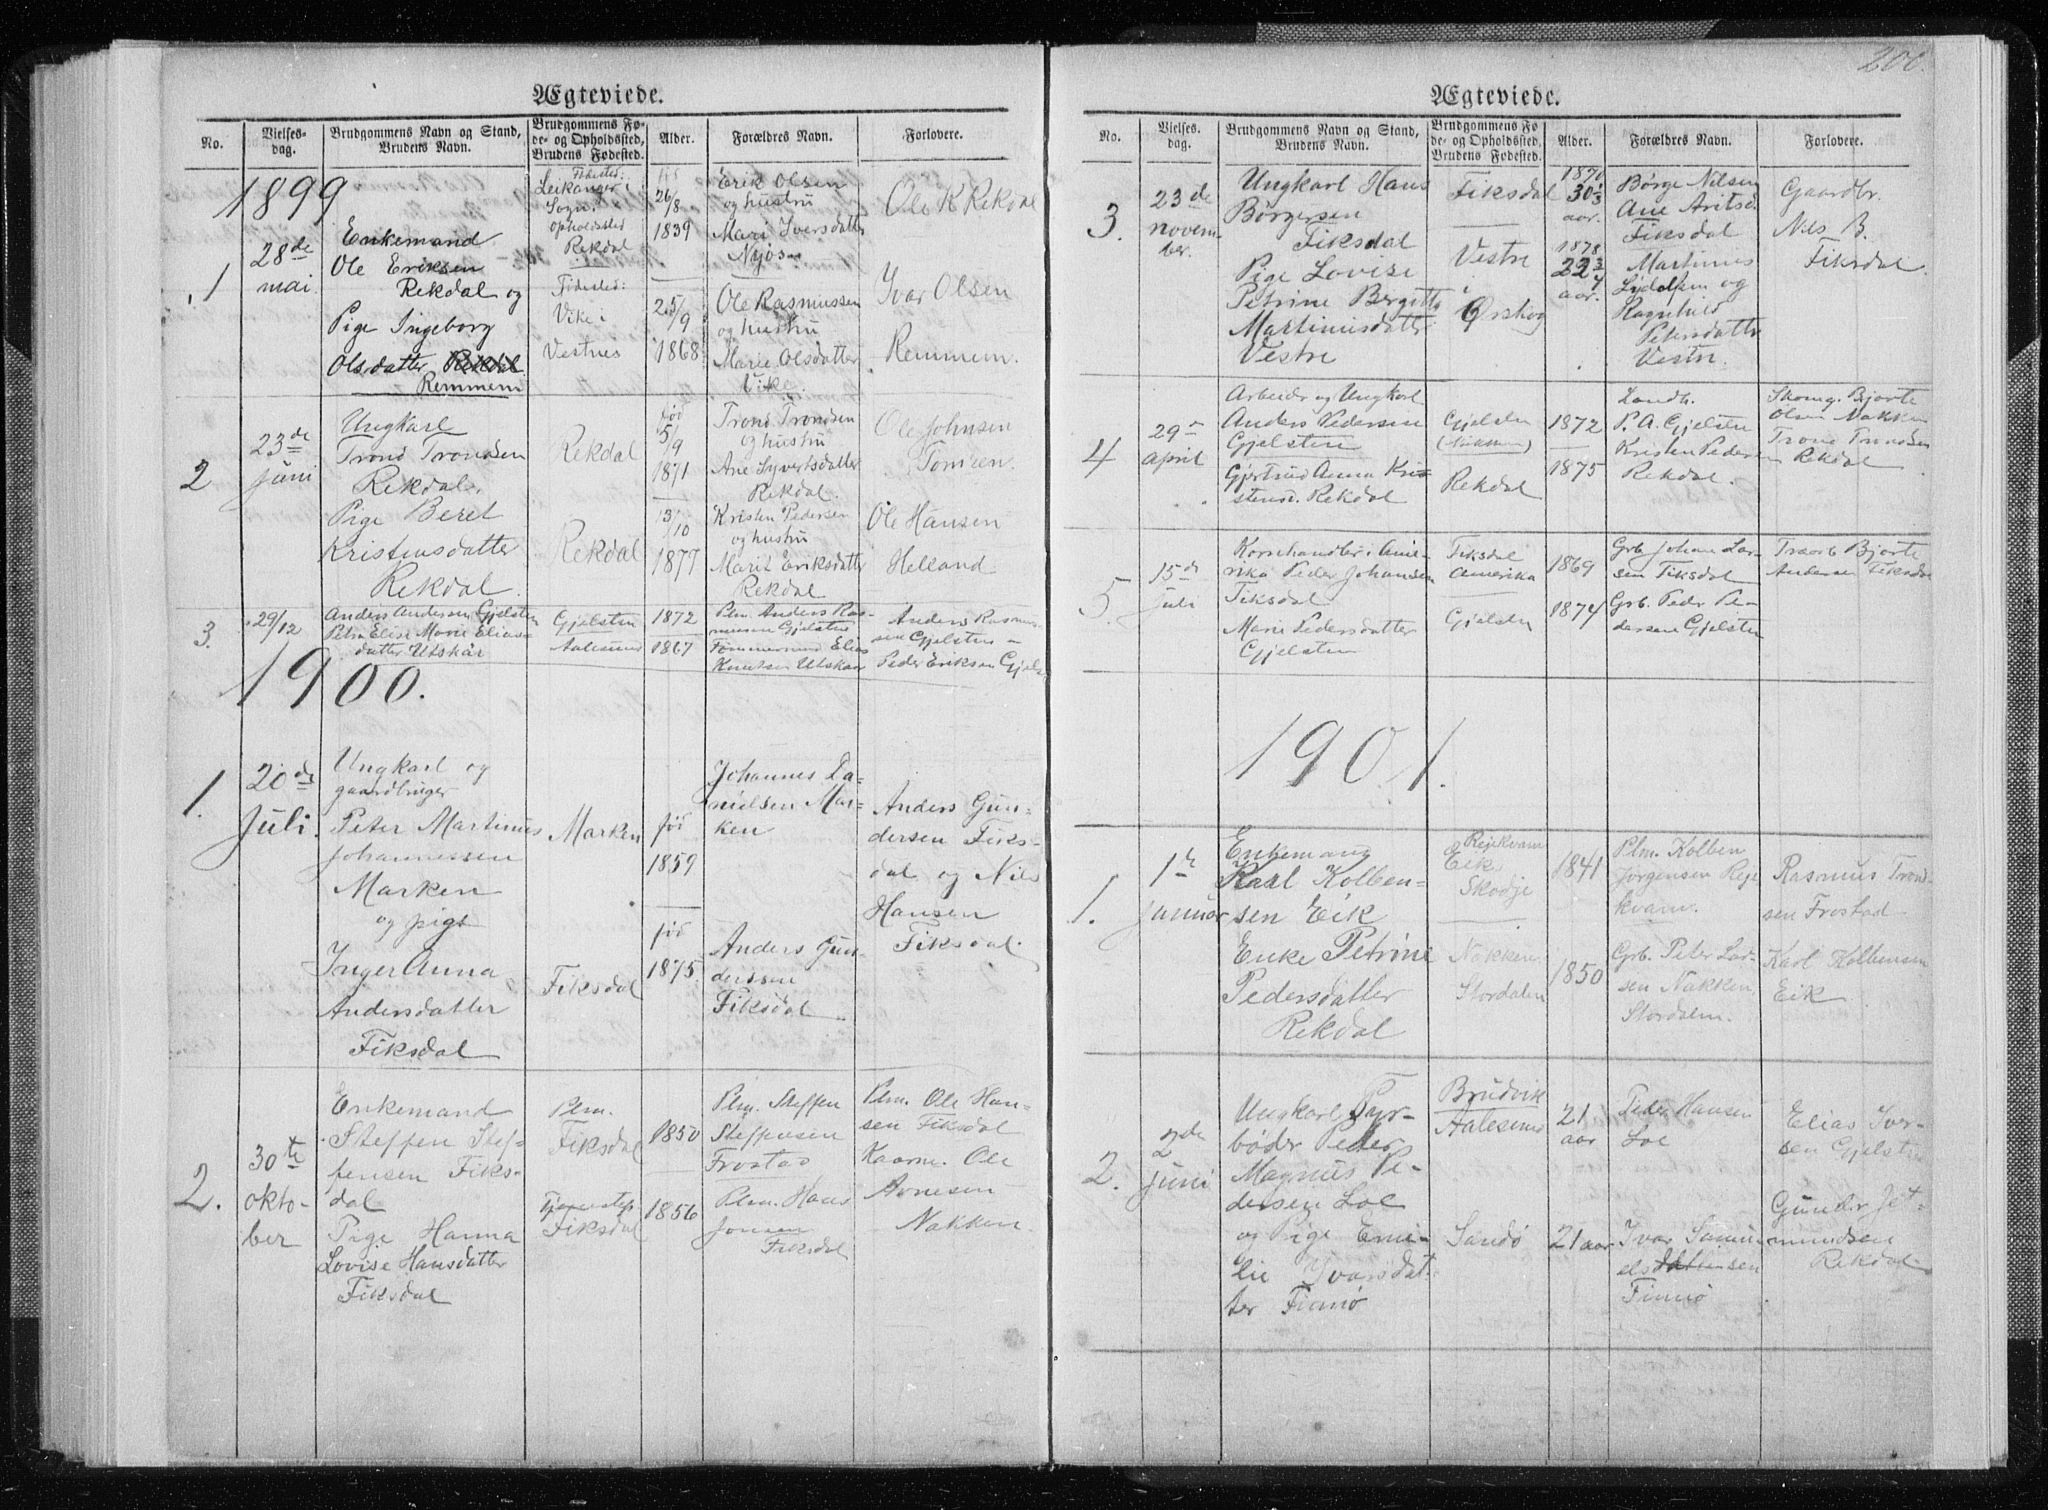 Ægteviede.
No.
Vielses-
dag.
Brudgommens Navn og Stand,
Brudens Navn.
Brudgommens Fø-
de- og Opholdssted,
Brudens Fødested.
Alder.
Forældres Navn.
Forlovere.
1899
1
28de
mai.
Enkemand
Ole Eriksen
Rekdal og
Pige Ingeborg
Olsdatter Rekdal
Remmem
Fødested:
Leikanger i
Sogn.
Opholdssted
Rekdal
Fødested:
Vike i
Vestnes
26/8
1839
25/9
1868
Erik Olsen
og hustru
Mari Iversdatter
Njøs
Ole Rasmussen
og hustru
Marie Olsdatter
Vike.
Ole K Rekdal
Ivar Olsen
Remmem.
2
23de
Juni
Ungkarl
Trond Trondsen
Rekdal.
Pige Beret
Kristensdatter
Rekdal
Rekdal
Rekdal
fød
5/9
1871
13/10
1877
Trond Trondsen
og hustru
Ane Syvertsdatter
Rekdal.
Kristen Pedersen
og hustru
Marit Eriksdatter
Rekdal
Ole Johnsen
Tomren.
Ole Hansen
Helland.
3.
29/12
Anders Andersen Gjelsten
Petra Elise Marie Elias-
datter Utskår
Gjelsten
Aalesund
1872
1867
Plm. Anders Ras-
mussen Gjelsten
Tømmermand Elias
Knutsen Utskår
Anders Rasmus-
sen Gjelsten
Peder Eriksen Gjels
1900.
1.
20de
Juli.
Ungkarl og
gaardbruger
Peter Martinus
Johannessen
Marken
og pige
Inger Anna
Andersdatter
Fiksdal
Marken
Fiksdal
fød
1859
fød
1875
Johannes Da-
nielsen Mar-
ken
Anders Gun-
dersen
Fiksdal
Anders Gun-
dersen Fiks-
dal og Nils
Hansen
Fiksdal.
2.
30te
okto-
ber
Enkemand
Steffen Stef-
fensen Fiks-
dal
Pige Hanna
Lovise Hansdatter
Fiksdal
Plm.
Fiksdal
Fiksdal
1850
1856
Plm. Steffen
Steffensen
Frostad
Plm. Hans
Jonsen
Fiksdal
Plm. Ole Han-
sen Fiksdal
Kaarm. Ole
Arnesen
Nakken.
200.
Ægteviede.
No.
Vielses-
dag.
Brudgommens Navn og Stand,
Brudens Navn.
Brudgommens Fø
de- og Opholdssted,
Brudens Fødested.
Alder.
Forældres Navn.
Forlovere.
3.
23de
novem-
ber.
Ungkarl Hans
Børgersen
Fiksdal
Pige Lovise
Petrine Bergitte
Martinusdatter
Vestre
Fiksdal
Vestre
i
Ørskog
1870
30 1/3
aar.
1878
22 3/4
aar.
Børge Nilsen
Ane Aritsd.
Fiksdal
Martinus
Lydolfsen og
Ragnhild
Petersdatter
Vestre.
Gaardbr.
Nils B.
Fiksdal
4
29de
april
Arbeider og Ungkarl
Anders Pedersen
Gjelsten
Gjertrud Anna Kri-
stensd. Rekdal
Gjelsten
(Nakken)
Rekdal
1872
1875
Landh.
P. A. Gjelsten
Kristen Peder-
Rekdal.
Skomg. Bjorte
Olsen Nakken
Trond Trondsen
Rekdal
5.
15de
juli
Kornhandler i Ame-
rika Peder Johansen
Fiksdal
Marie Pedersdatter
Gjelsten
Fiksdal
Amerika
Gjelsten
1869
1874
Grb. Johan Lar-
sen Fiksdal
Grb. Peder Pe-
dersen Gjelsten
Træarb. Bjorte
Andersen Fiksdal
1901.
1.
1ste
Januar
Enkemand
Karl Kolben-
sen Eik
Enke Petrine
Pedersdatter
Rekdal
Rejekvam
Eik
Skodje
Nakken
Stordalen
1841
1850
Plm. Kolben
Jørgensen Reje
kvam.
Grb. Peter Lar-
sen Nakken,
Stordalen.
Rasmus Trond-
sen Frostad
Karl Kolbensen
Eik
2.
2den
Juni
Ungkarl Tyr-
bøder Peder
Magnus Pe-
dersen Loe
og Pige Emi-
lie Ivarsdat-
ter Finnø
Brudvik
Aalesund
Sandø
21
aar
21 aar
Peder Hansen
Loe
Ivar Samu-
elsdattersen
Finnø
Elias Iver-
sen Gjelsten
Gunder Jet-
mundsen
Rekdal